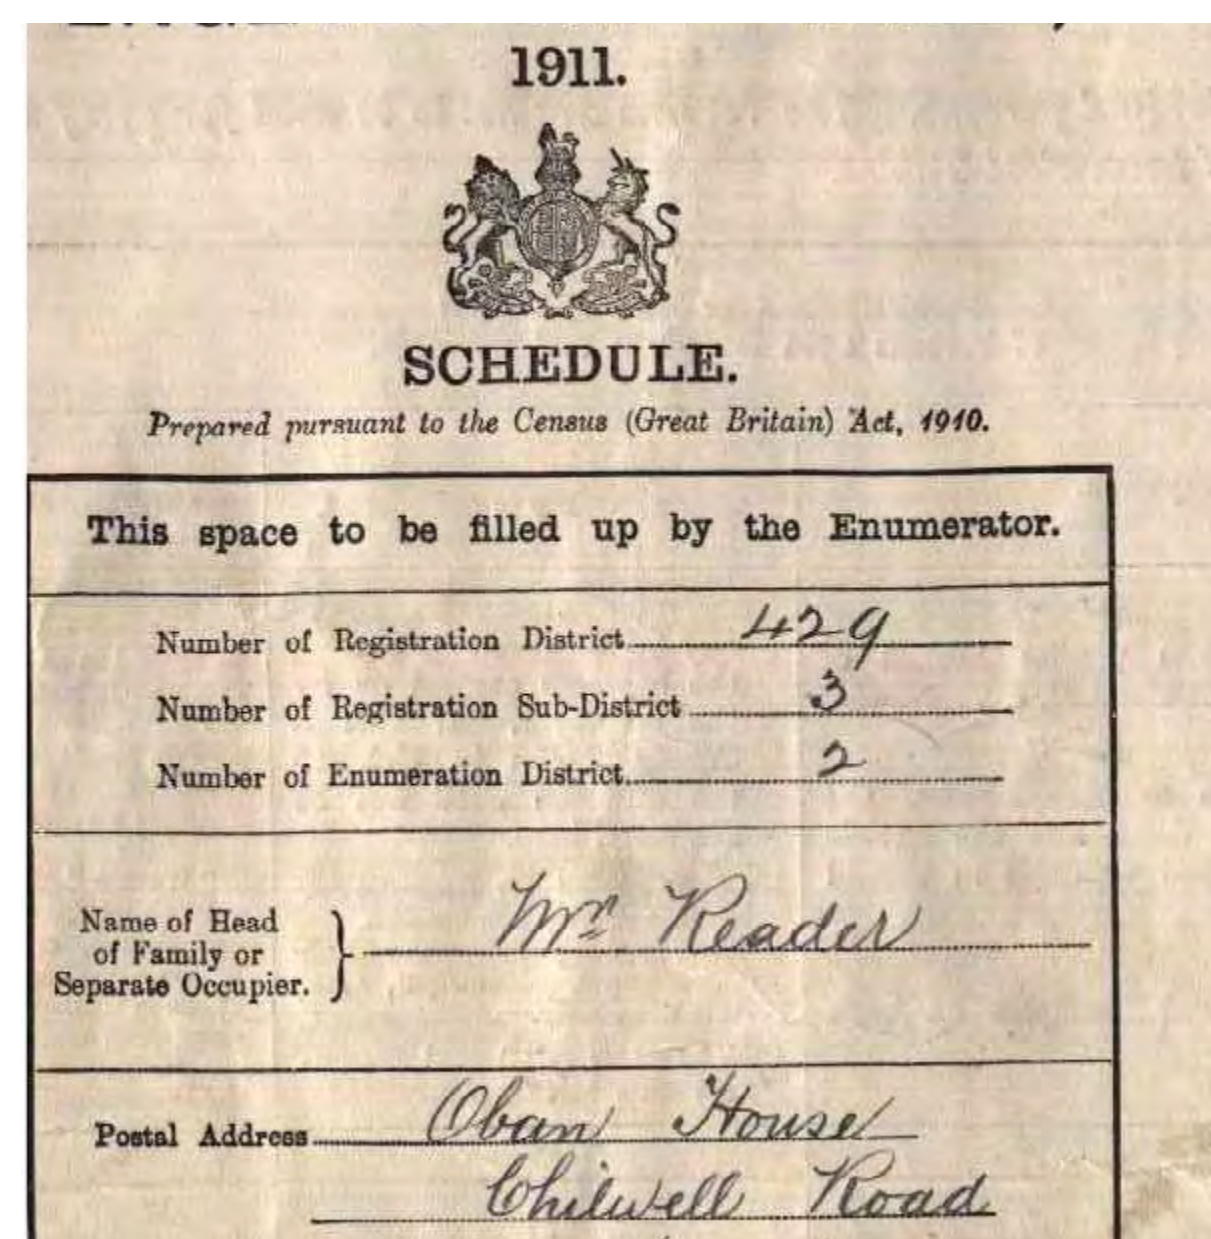 1911.
SCHEDULE.
Prepared pursuant to the Census (Great Britain) Act, 1910.
This space to be filled up by the Enumerator.
Number of Registration District 429
Number of Registration Sub-District 3
Number of Enumeration District 2
Name of Head
of Family or
Separate Occupier. } Mr Reader
Postal Address Oban House
Chilwell Road